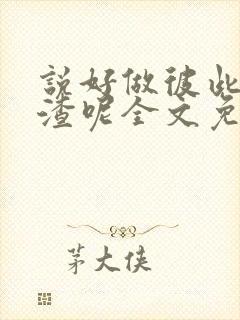 說好做彼此
渣呢全文免
茅大俠